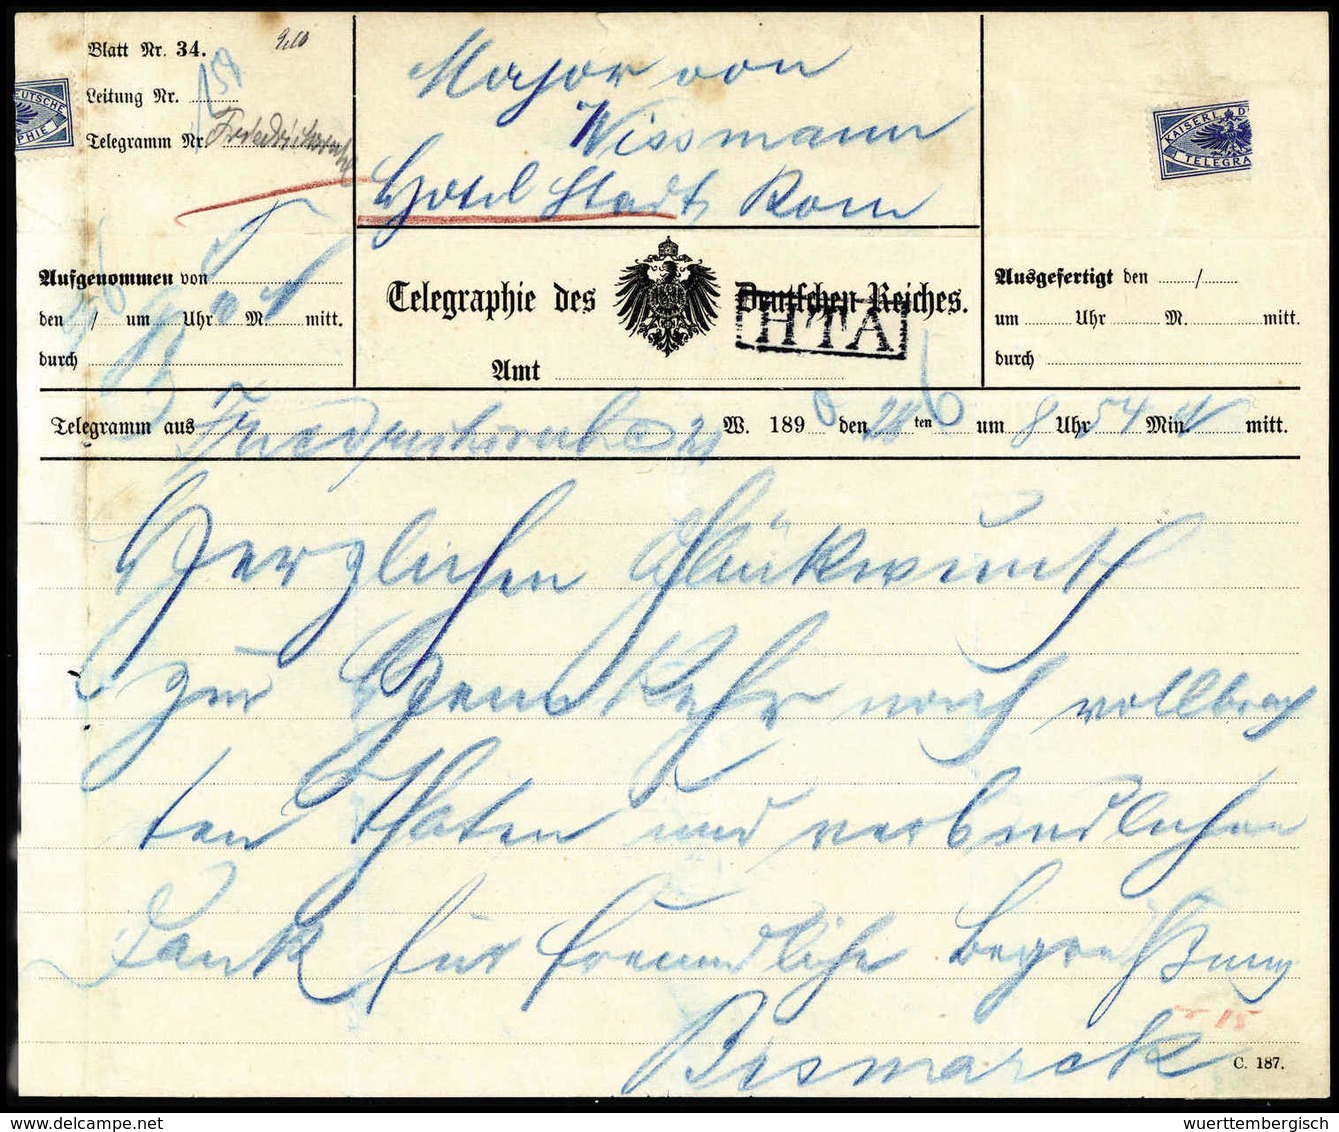 Blatt Nr. 34.
Leitung Nr.
Telegramm Nr. Friedrichsruh
Major von
Wissmann
Hotel Stadt Rom
DEUTSCHE
PHIE
KAISERL. D
TELEGRA
Aufgenommen von
den / um Uhr M. mitt.
durch
Telegraphie des Deutschen Reiches.
HTA
Amt
Ausgefertigt den /
um Uhr M. mitt.
durch
Telegramm aus Friedrichsruh W. 189 den 26 ten 6 um 8 Uhr 54 Min mitt.
Herzlichen Glückwunsch
zur Heimkehr nach vollbrach
ten Thaten und verbindlichen
Dank für freundliche Begrüßung
Bismarck
C. 187.
wuerttembergisch